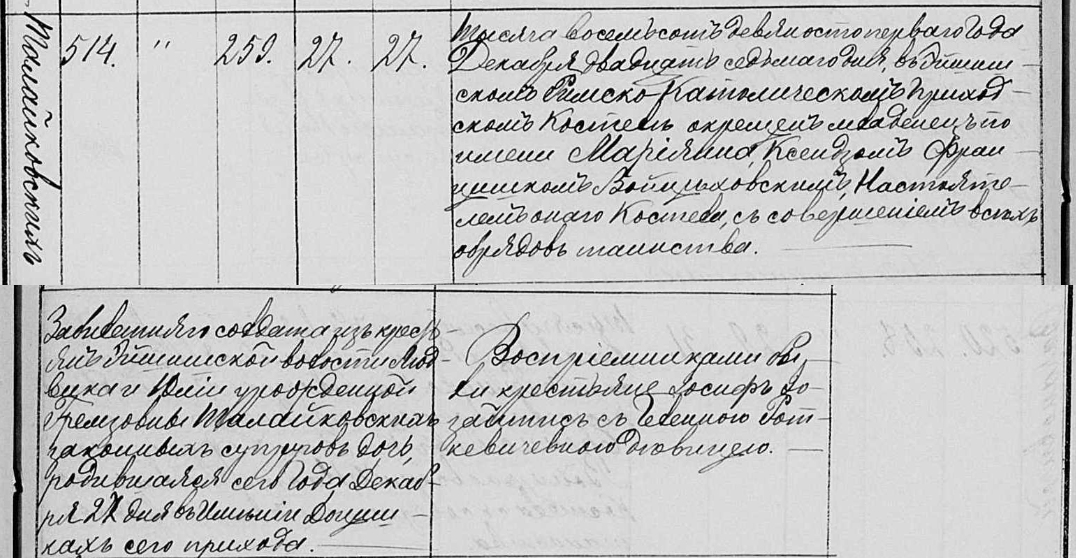 Талайковскихъ
514. " 259. 27. 27.
Тысяча восемьсотъ девяностоперваго Года
Декабря двадцать седьмаго дня, въ Эйшиш-
скомъ Римско Католическомъ Приход-
скомъ Костелѣ окрещенъ младенецъ по
имени Маріянна, Ксендзомъ Фран-
цишкомъ Войцѣховскимъ, Настояте-
лемъ онаго Костела, съ совершеніемъ всѣхъ
обрядовъ таинства.
солдата изъ крестъ-
янъ Эйшишской волости Люд-
вика и Юліи урожденной
Талайковскихъ
законныхъ супруговъ дочь,
родившаяся сего Года Декаб-
ря 27 дня въ Имѣніи
кахъ сего прихода.
Воспріемниками бы-
ли крестьяне Іосифъ Бо-
съ Еленою Рот-
кевичевною дѣвицею.